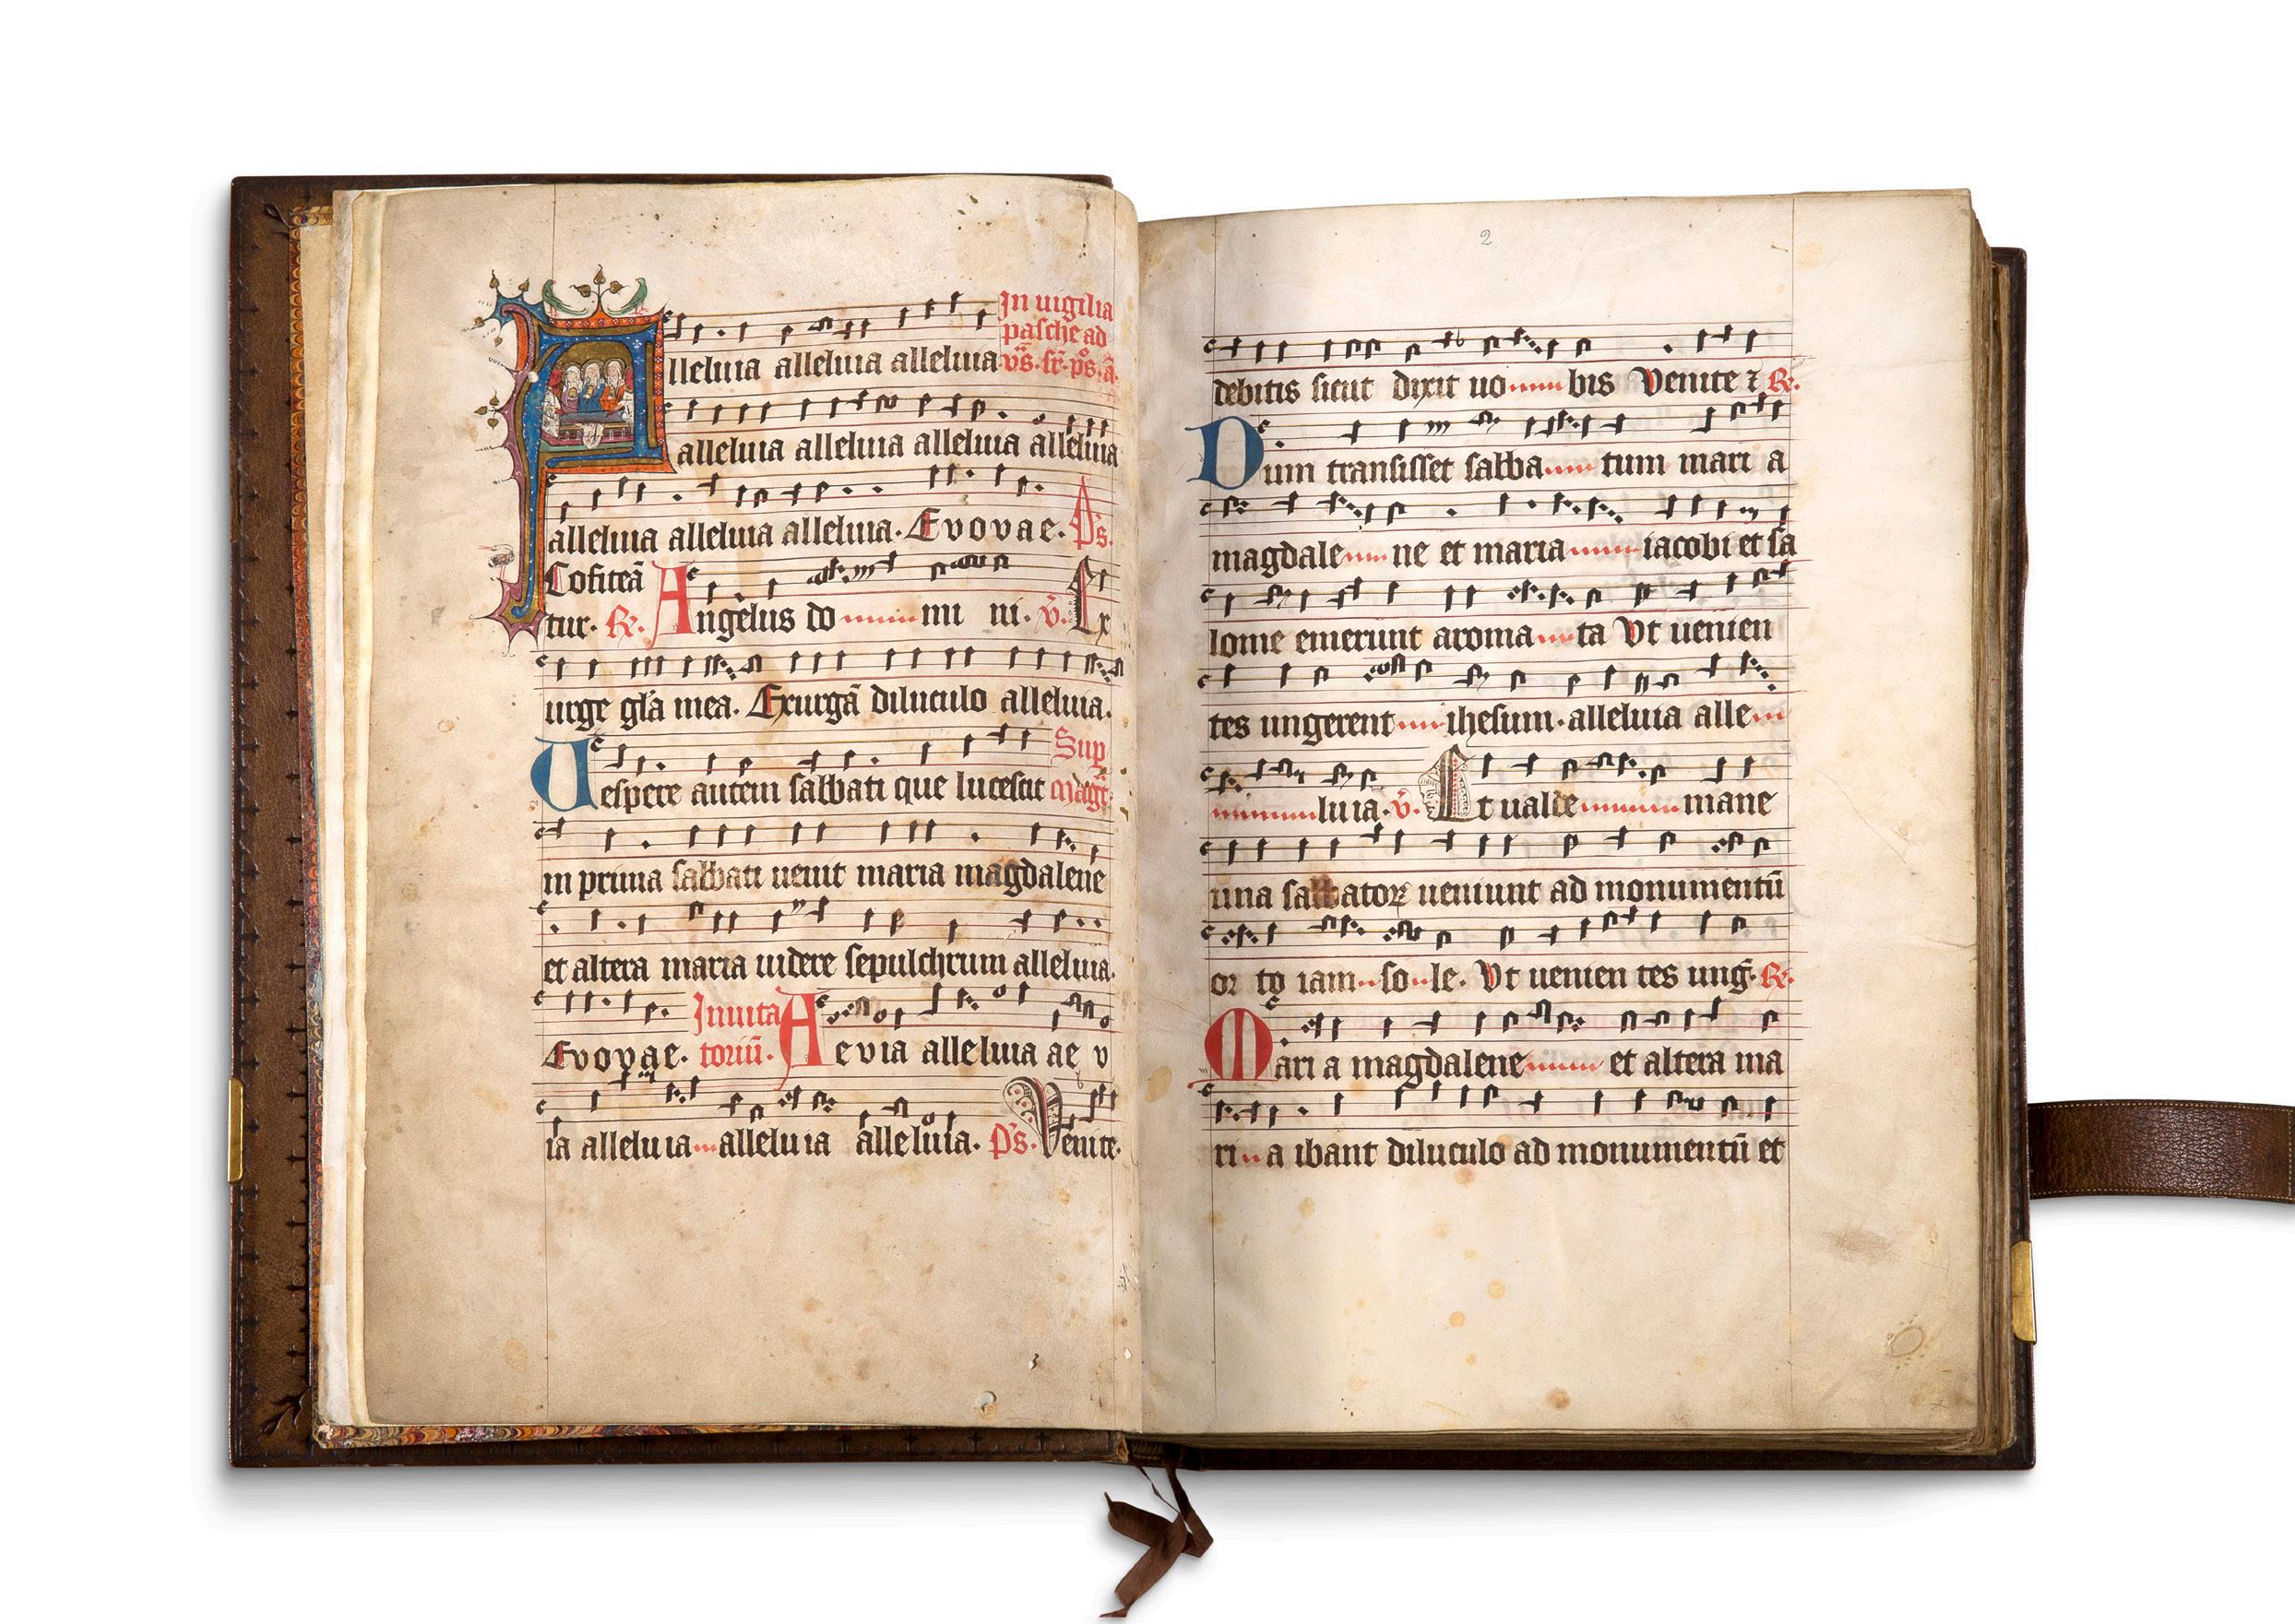 In uigilia
pasche ad
v̄s. fr̄. ps. a̅.
Alleluia alleluia alleluia
alleluia alleluia alleluia alleluia
alleluia alleluia alleluia. Evovae. Ps.
Cofiteā
tur. R̷. Angelus do mi ni. v̄. Ex
urge gl̄a mea. Exurgā diluculo alleluia.
Sup
Vespere autem sabbati que lucescit magt̄.
in prima sabbati uenit maria magdalene
et altera maria uidere sepulchrum alleluia.
Inuita
Evovae. toriū. Aevia alleluia ae v
ia alleluia alleluia alleluia. Ps. Venite.
2
debitis sicut dixit uo bis Venite ⁊ R̷.
Dum transisset sabba tum mari a
magdale ne et maria iacobi et sa
lome emerunt aroma ta Vt uenien
tes ungerent ihesum. alleluia alle
luia. v̄. Et ualde mane
una sabbatoꝝ ueniunt ad monumentū
or to iam so le. Vt uenien tes ung̅. R̷.
Mari a magdalene et altera ma
ri a ibant diluculo ad monumentū et